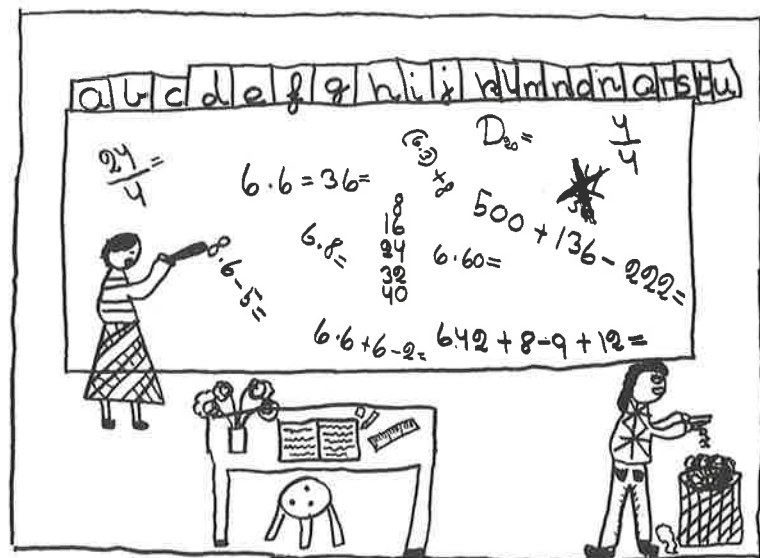 a b c d e f g h i j k l m n o p q r s t u
24/4 =
6·6=36=
(6·3)+8
D₂₀=
4/4
6·8=
8
16
24
32
40
6·60=
500+136-222=
8·6-5=
6·6+6-2=
6·42+8-9+12=